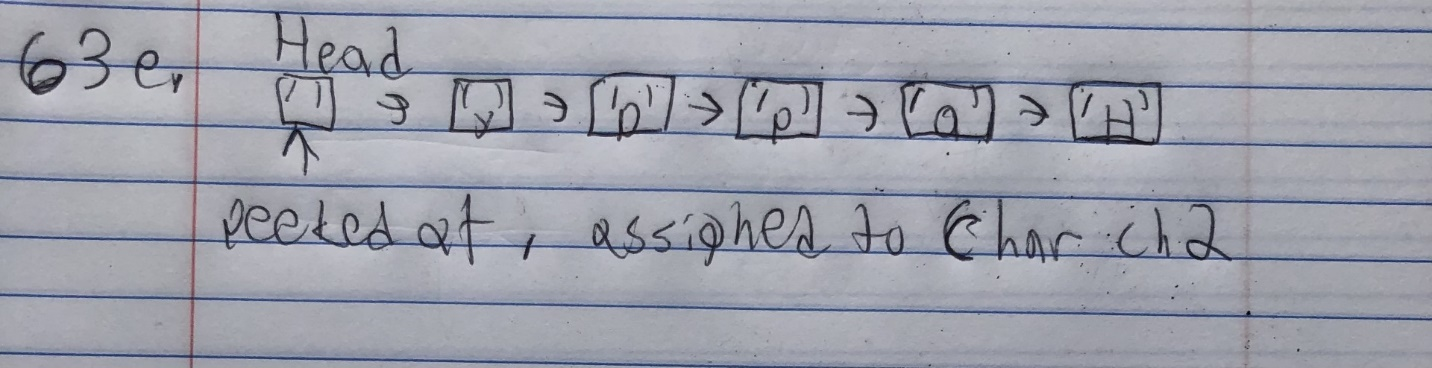 63e. Head
[' '] → ['y'] → ['p'] → ['p'] → ['a'] → ['H']
↑
peeked at, assigned to Char ch2